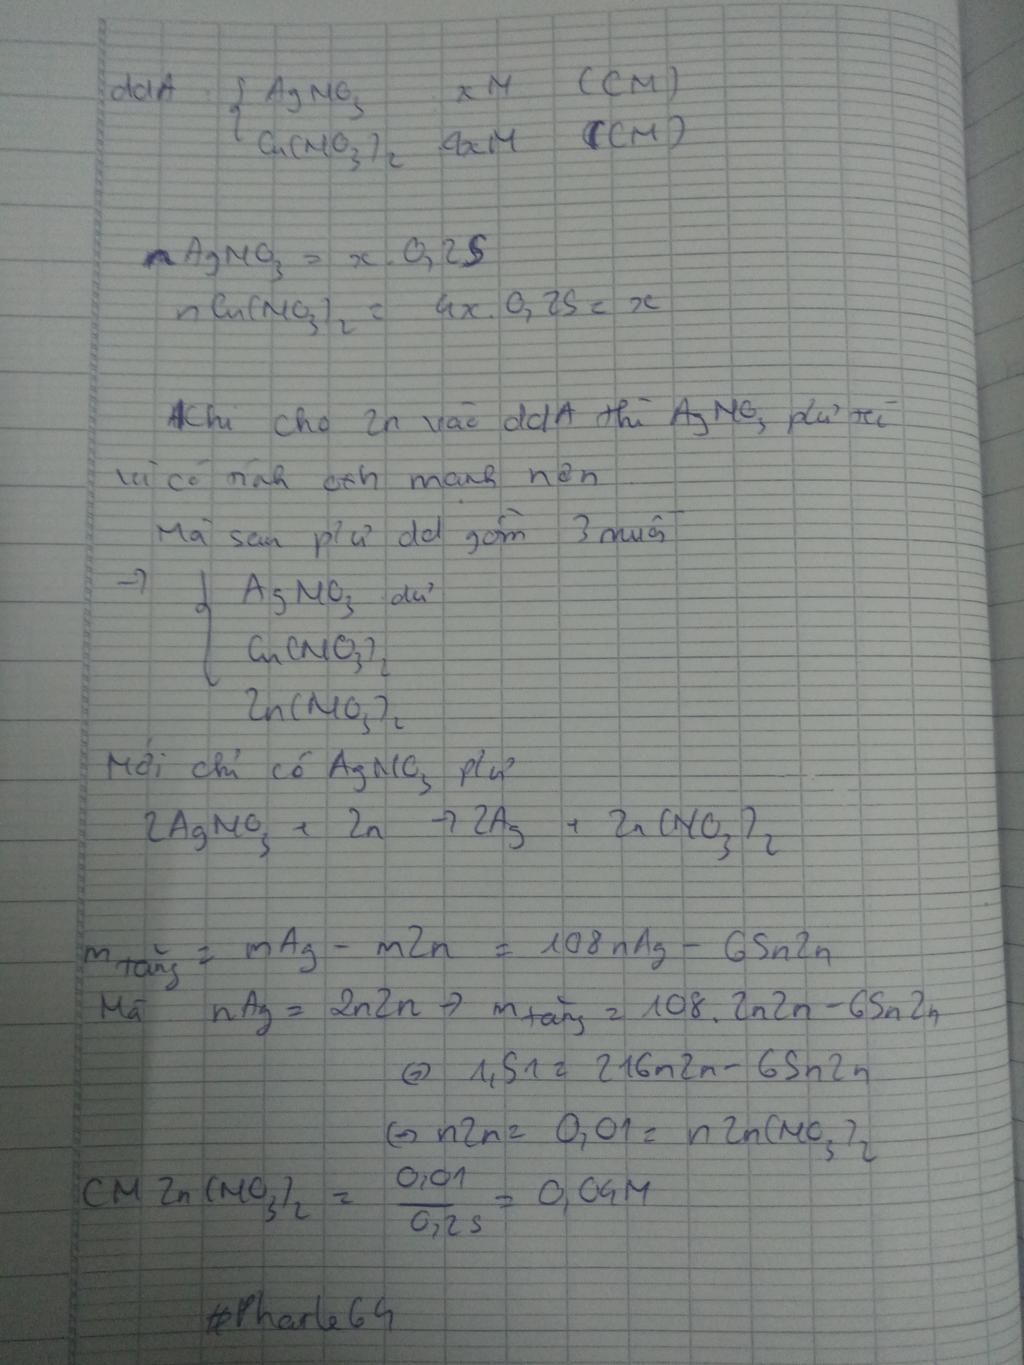 ddA { AgNO3 xM (CM)
Cu(NO3)2 4xM (CM)
nAgNO3 = x.0,25
nCu(NO3)2 = 4x.0,25 = x
Khi cho Zn vào ddA thì AgNO3 pứ
vì có tính oxh mạnh hơn
Mà sau pứ dd gồm 3 muối
→ { AgNO3 dư
Cu(NO3)2
Zn(NO3)2
Mới chỉ có AgNO3 pứ
2AgNO3 + Zn → 2Ag + Zn(NO3)2
m tăng = mAg - mZn = 108nAg - 65nZn
Mà nAg = 2nZn → m tăng = 108.2nZn - 65nZn
⇔ 1,51 = 216nZn - 65nZn
⇔ nZn = 0,01 = nZn(NO3)2
CM Zn(NO3)2 = 0,01/0,25 = 0,04M